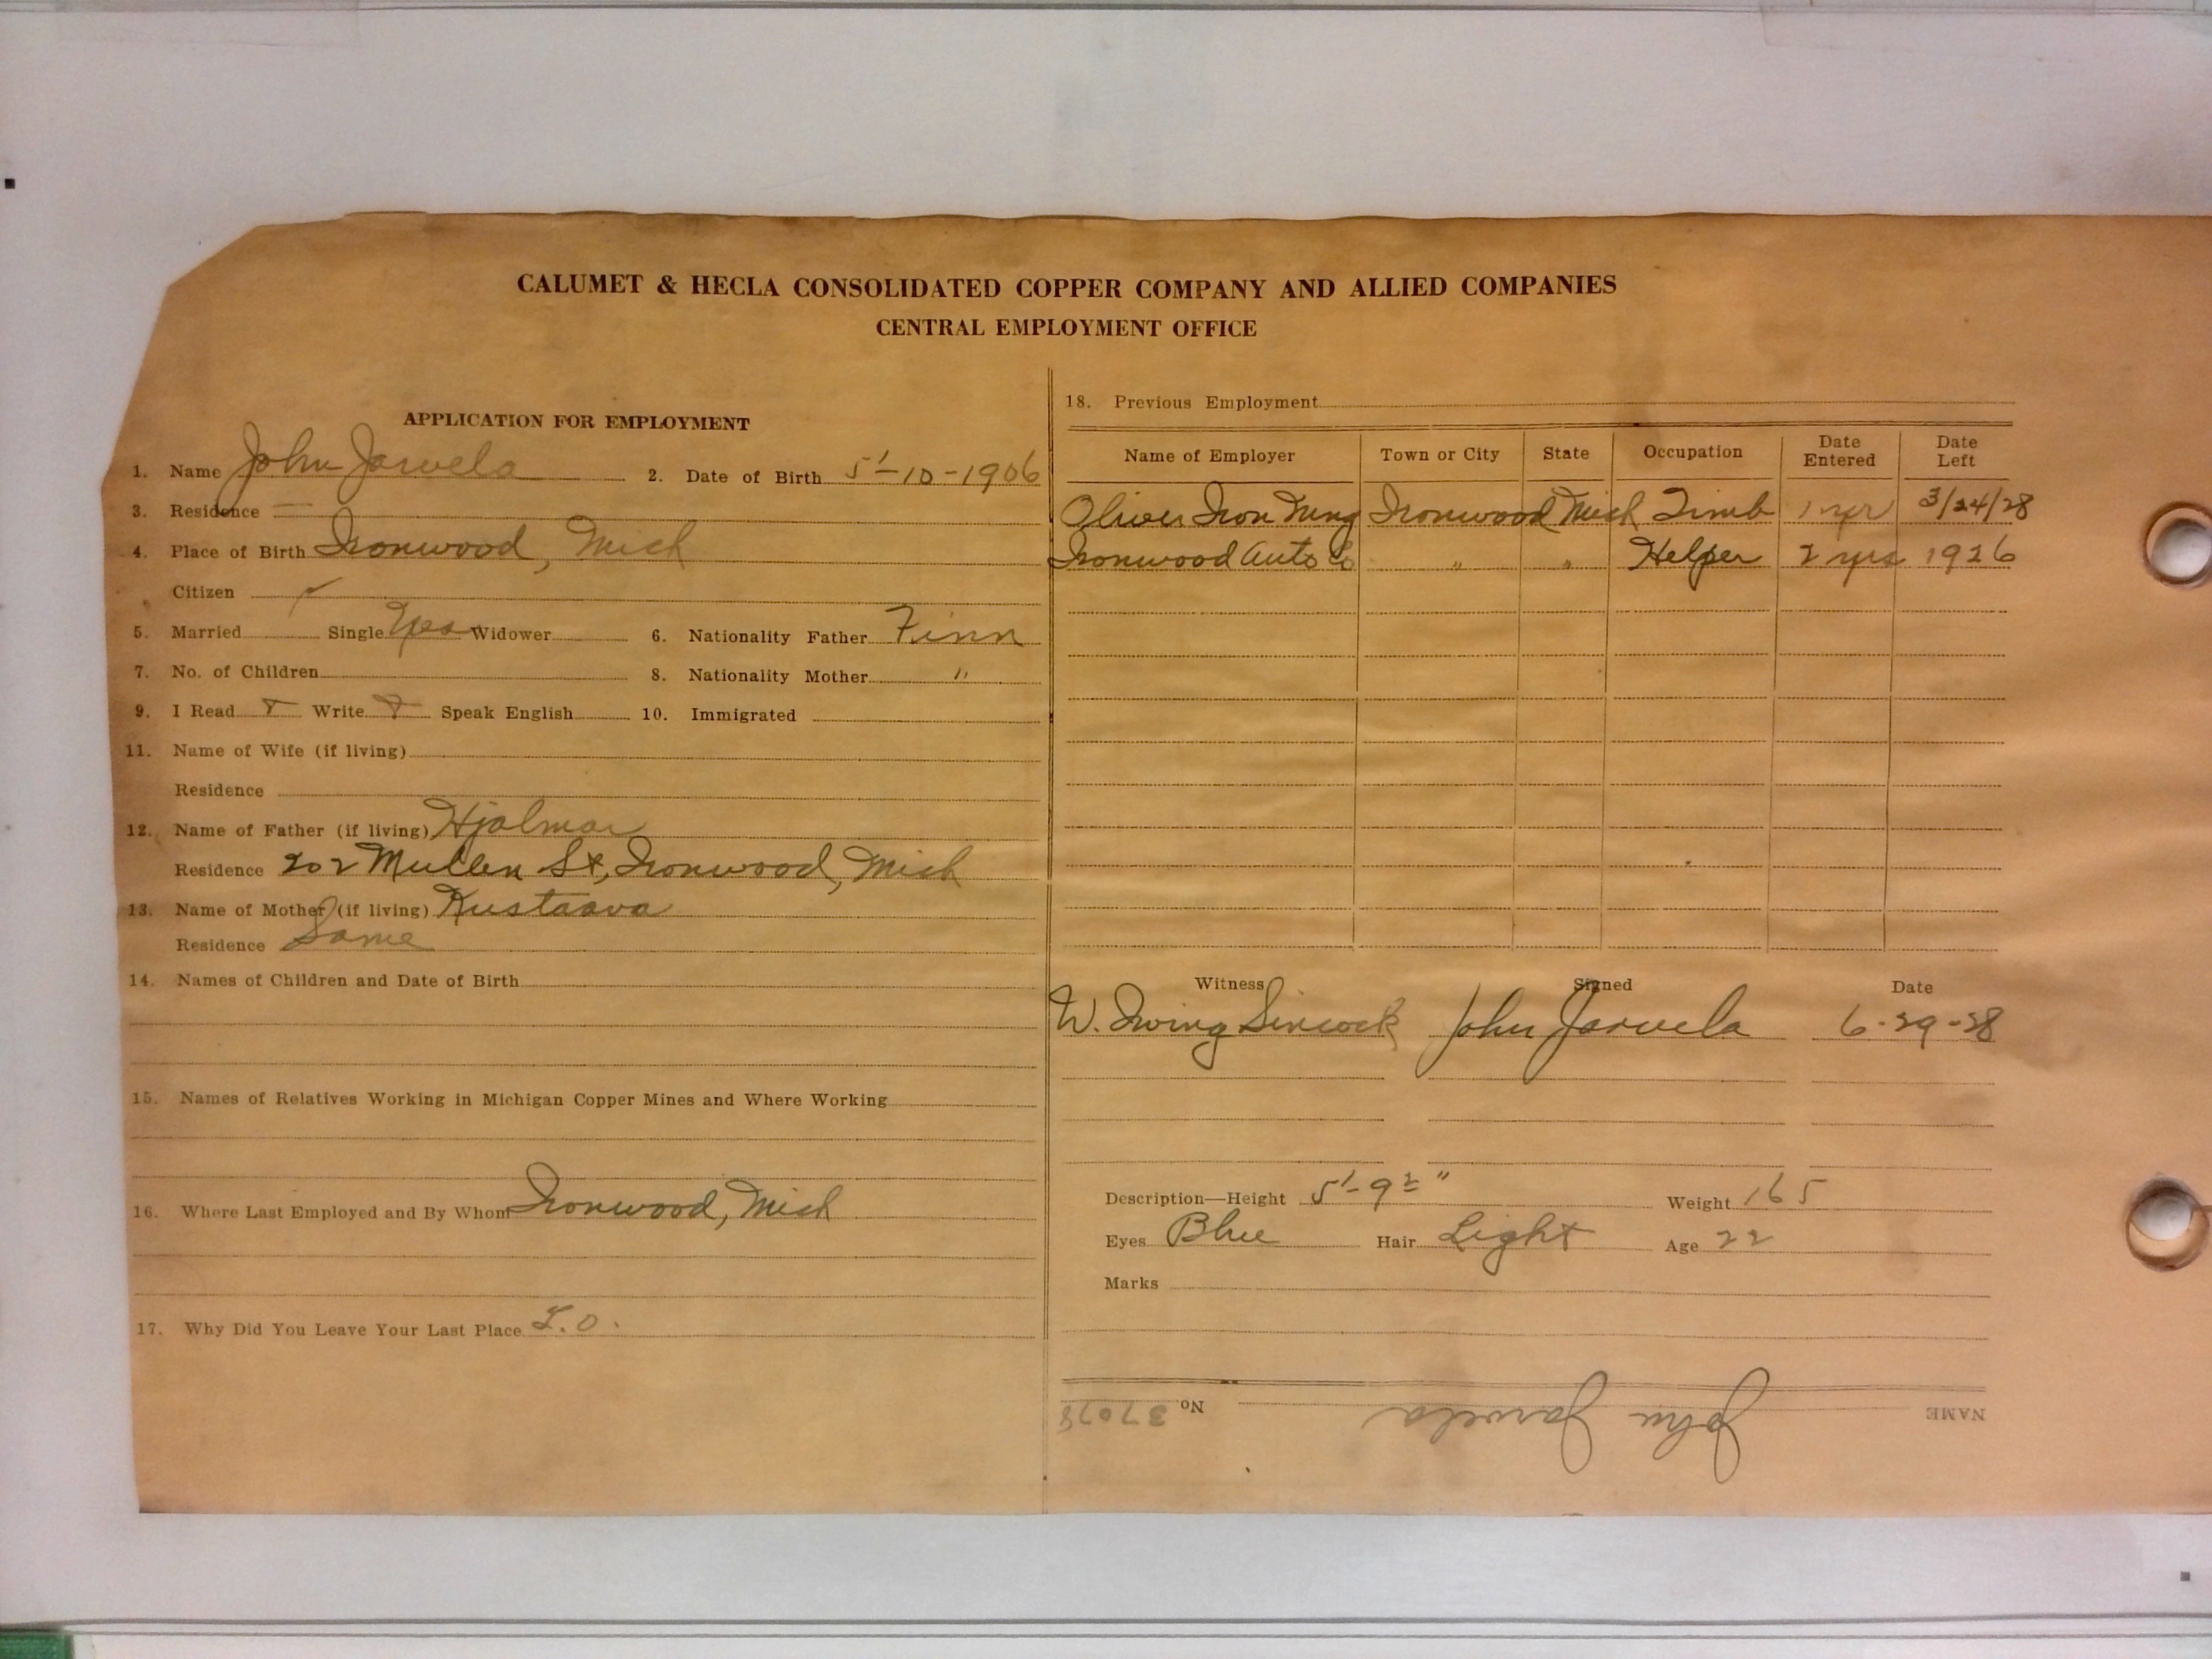 CALUMET & HECLA CONSOLIDATED COPPER COMPANY AND ALLIED COMPANIES
CENTRAL EMPLOYMENT OFFICE
APPLICATION FOR EMPLOYMENT
1. Name John Jarvela 2. Date of Birth 5-10-1906
3. Residence —
4. Place of Birth Ironwood, Mich
Citizen ✓
5. Married Single Yes Widower 6. Nationality Father Finn
7. No. of Children 8. Nationality Mother "
9. I Read Write Speak English 10. Immigrated
11. Name of Wife (if living)
Residence
12. Name of Father (if living) Hjalmar
Residence 202 Mullen St, Ironwood, Mich
13. Name of Mother (if living) Kustaava
Residence Same
14. Names of Children and Date of Birth
15. Names of Relatives Working in Michigan Copper Mines and Where Working
16. Where Last Employed and By Whom Ironwood, Mich
17. Why Did You Leave Your Last Place L.O.
18. Previous Employment
Name of Employer Town or City State Occupation Date Entered Date Left
Oliver Iron Mng Ironwood Mich Timb 1 yr 3/24/28
Ironwood Auto Co " " Helper 2 yrs 1926
Witness Signed Date
W. Irving Sincock John Jarvela 6-29-28
Description—Height 5'-9½" Weight 165
Eyes Blue Hair Light Age 22
Marks
NAME John Jarvela No. 37078